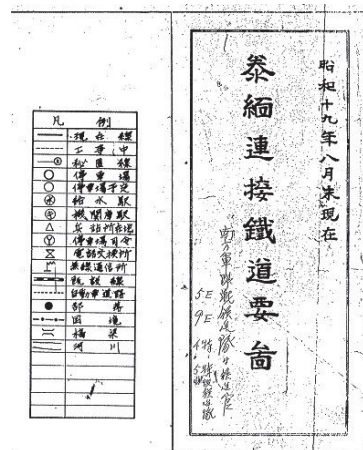 昭和十九年八月末現在
泰緬連接鐵道要啚
5E
9E
凡例
現在線
工事中
私直線
停車場
停車場予定
給水駅
機関庫駅
兵站所在地
停車場司令
電話交換所
無線通信所
既設線
自動車道路
部落
国境
橋梁
河川